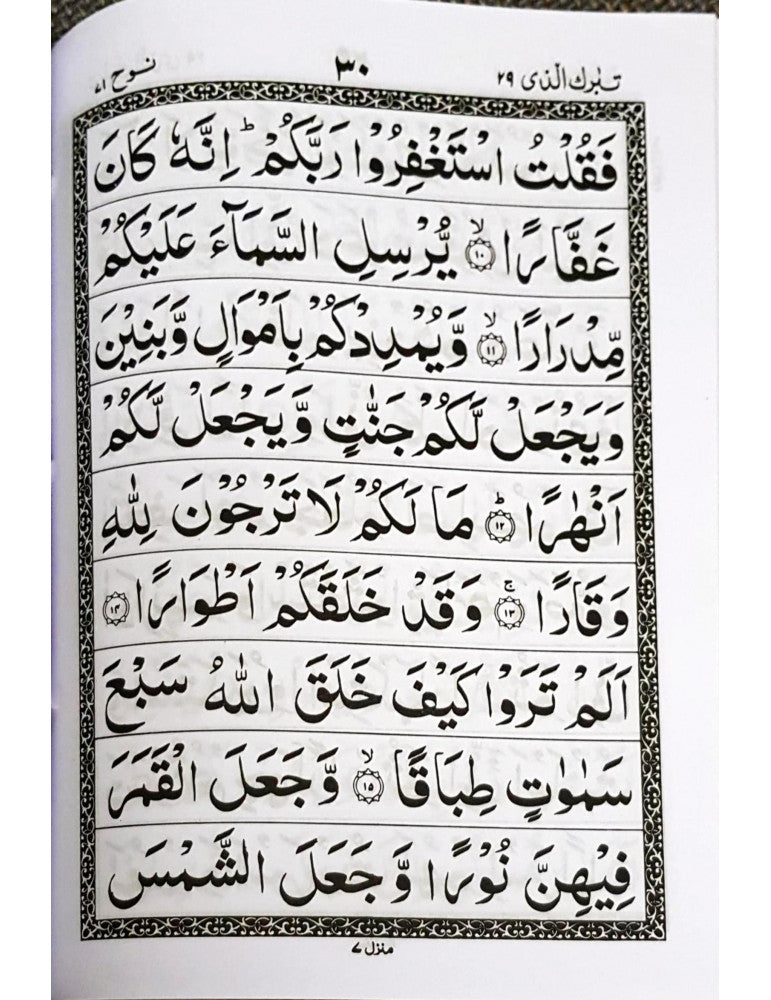 تبٰرك الذی ۲۹ ۳۰ نوح ۷۱
فَقُلْتُ اسْتَغْفِرُوْا رَبَّكُمْ ؕ اِنَّهٗ كَانَ
غَفَّارًا ۙ۝۱۰ یُّرْسِلِ السَّمَآءَ عَلَیْكُمْ
مِّدْرَارًا ۙ۝۱۱ وَّیُمْدِدْكُمْ بِاَمْوَالٍ وَّبَنِیْنَ
وَیَجْعَلْ لَّكُمْ جَنّٰتٍ وَّیَجْعَلْ لَّكُمْ
اَنْهٰرًا ؕ۝۱۲ مَا لَكُمْ لَا تَرْجُوْنَ لِلّٰهِ
وَقَارًا ۚ۝۱۳ وَقَدْ خَلَقَكُمْ اَطْوَارًا ۝۱۴
اَلَمْ تَرَوْا كَیْفَ خَلَقَ اللّٰهُ سَبْعَ
سَمٰوٰتٍ طِبَاقًا ۙ۝۱۵ وَّجَعَلَ الْقَمَرَ
فِیْهِنَّ نُوْرًا وَّجَعَلَ الشَّمْسَ
منزل ۷